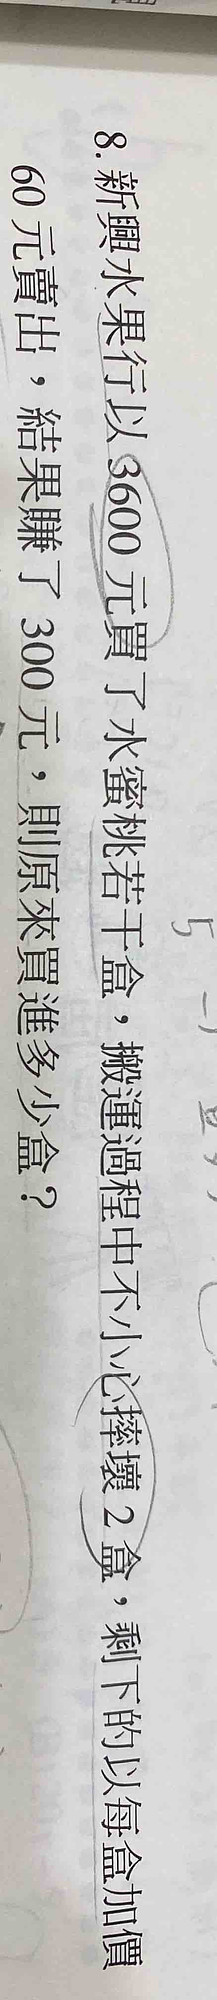 8. 新興水果行以 3600 元買了水蜜桃若干盒，搬運過程中不小心摔壞 2 盒，剩下的以每盒加價
60 元賣出，結果賺了 300 元，則原來買進多少盒？